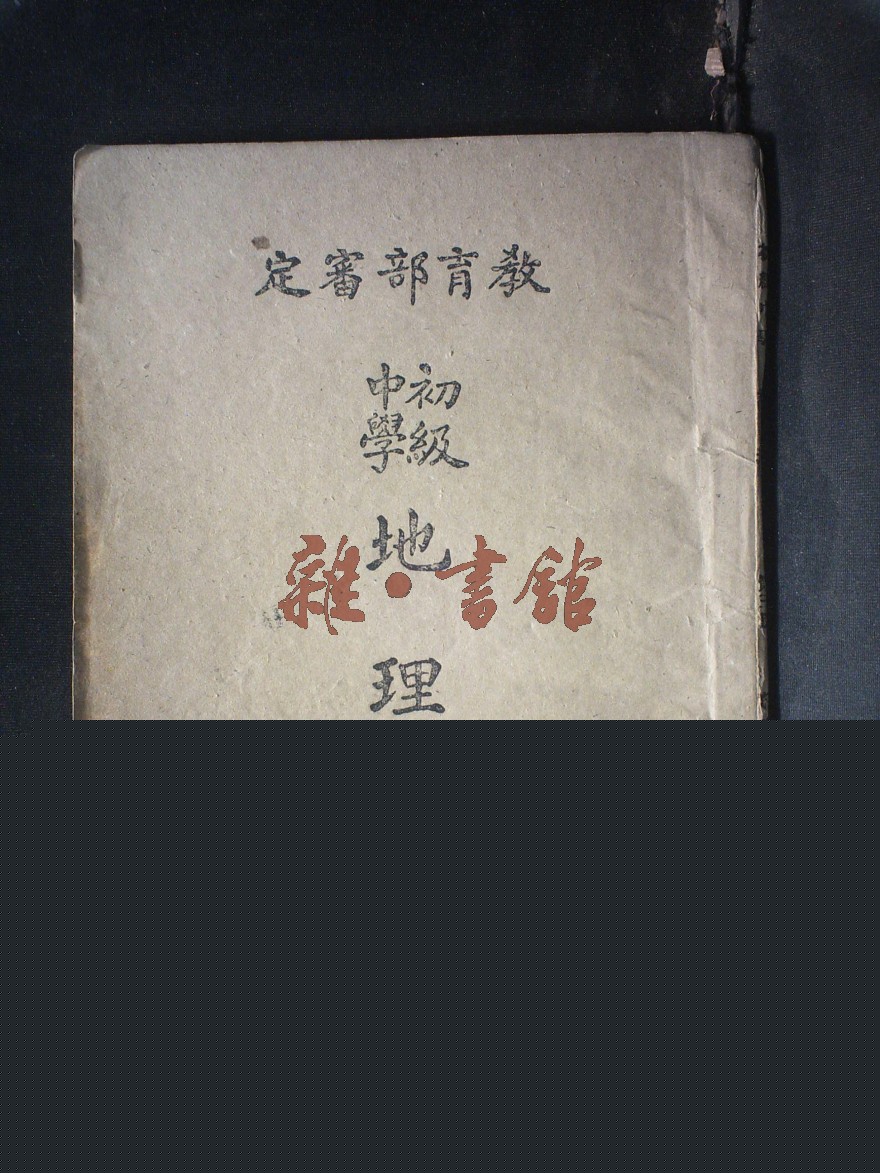 教育部審定
初級
中學
地
理
雜•書館